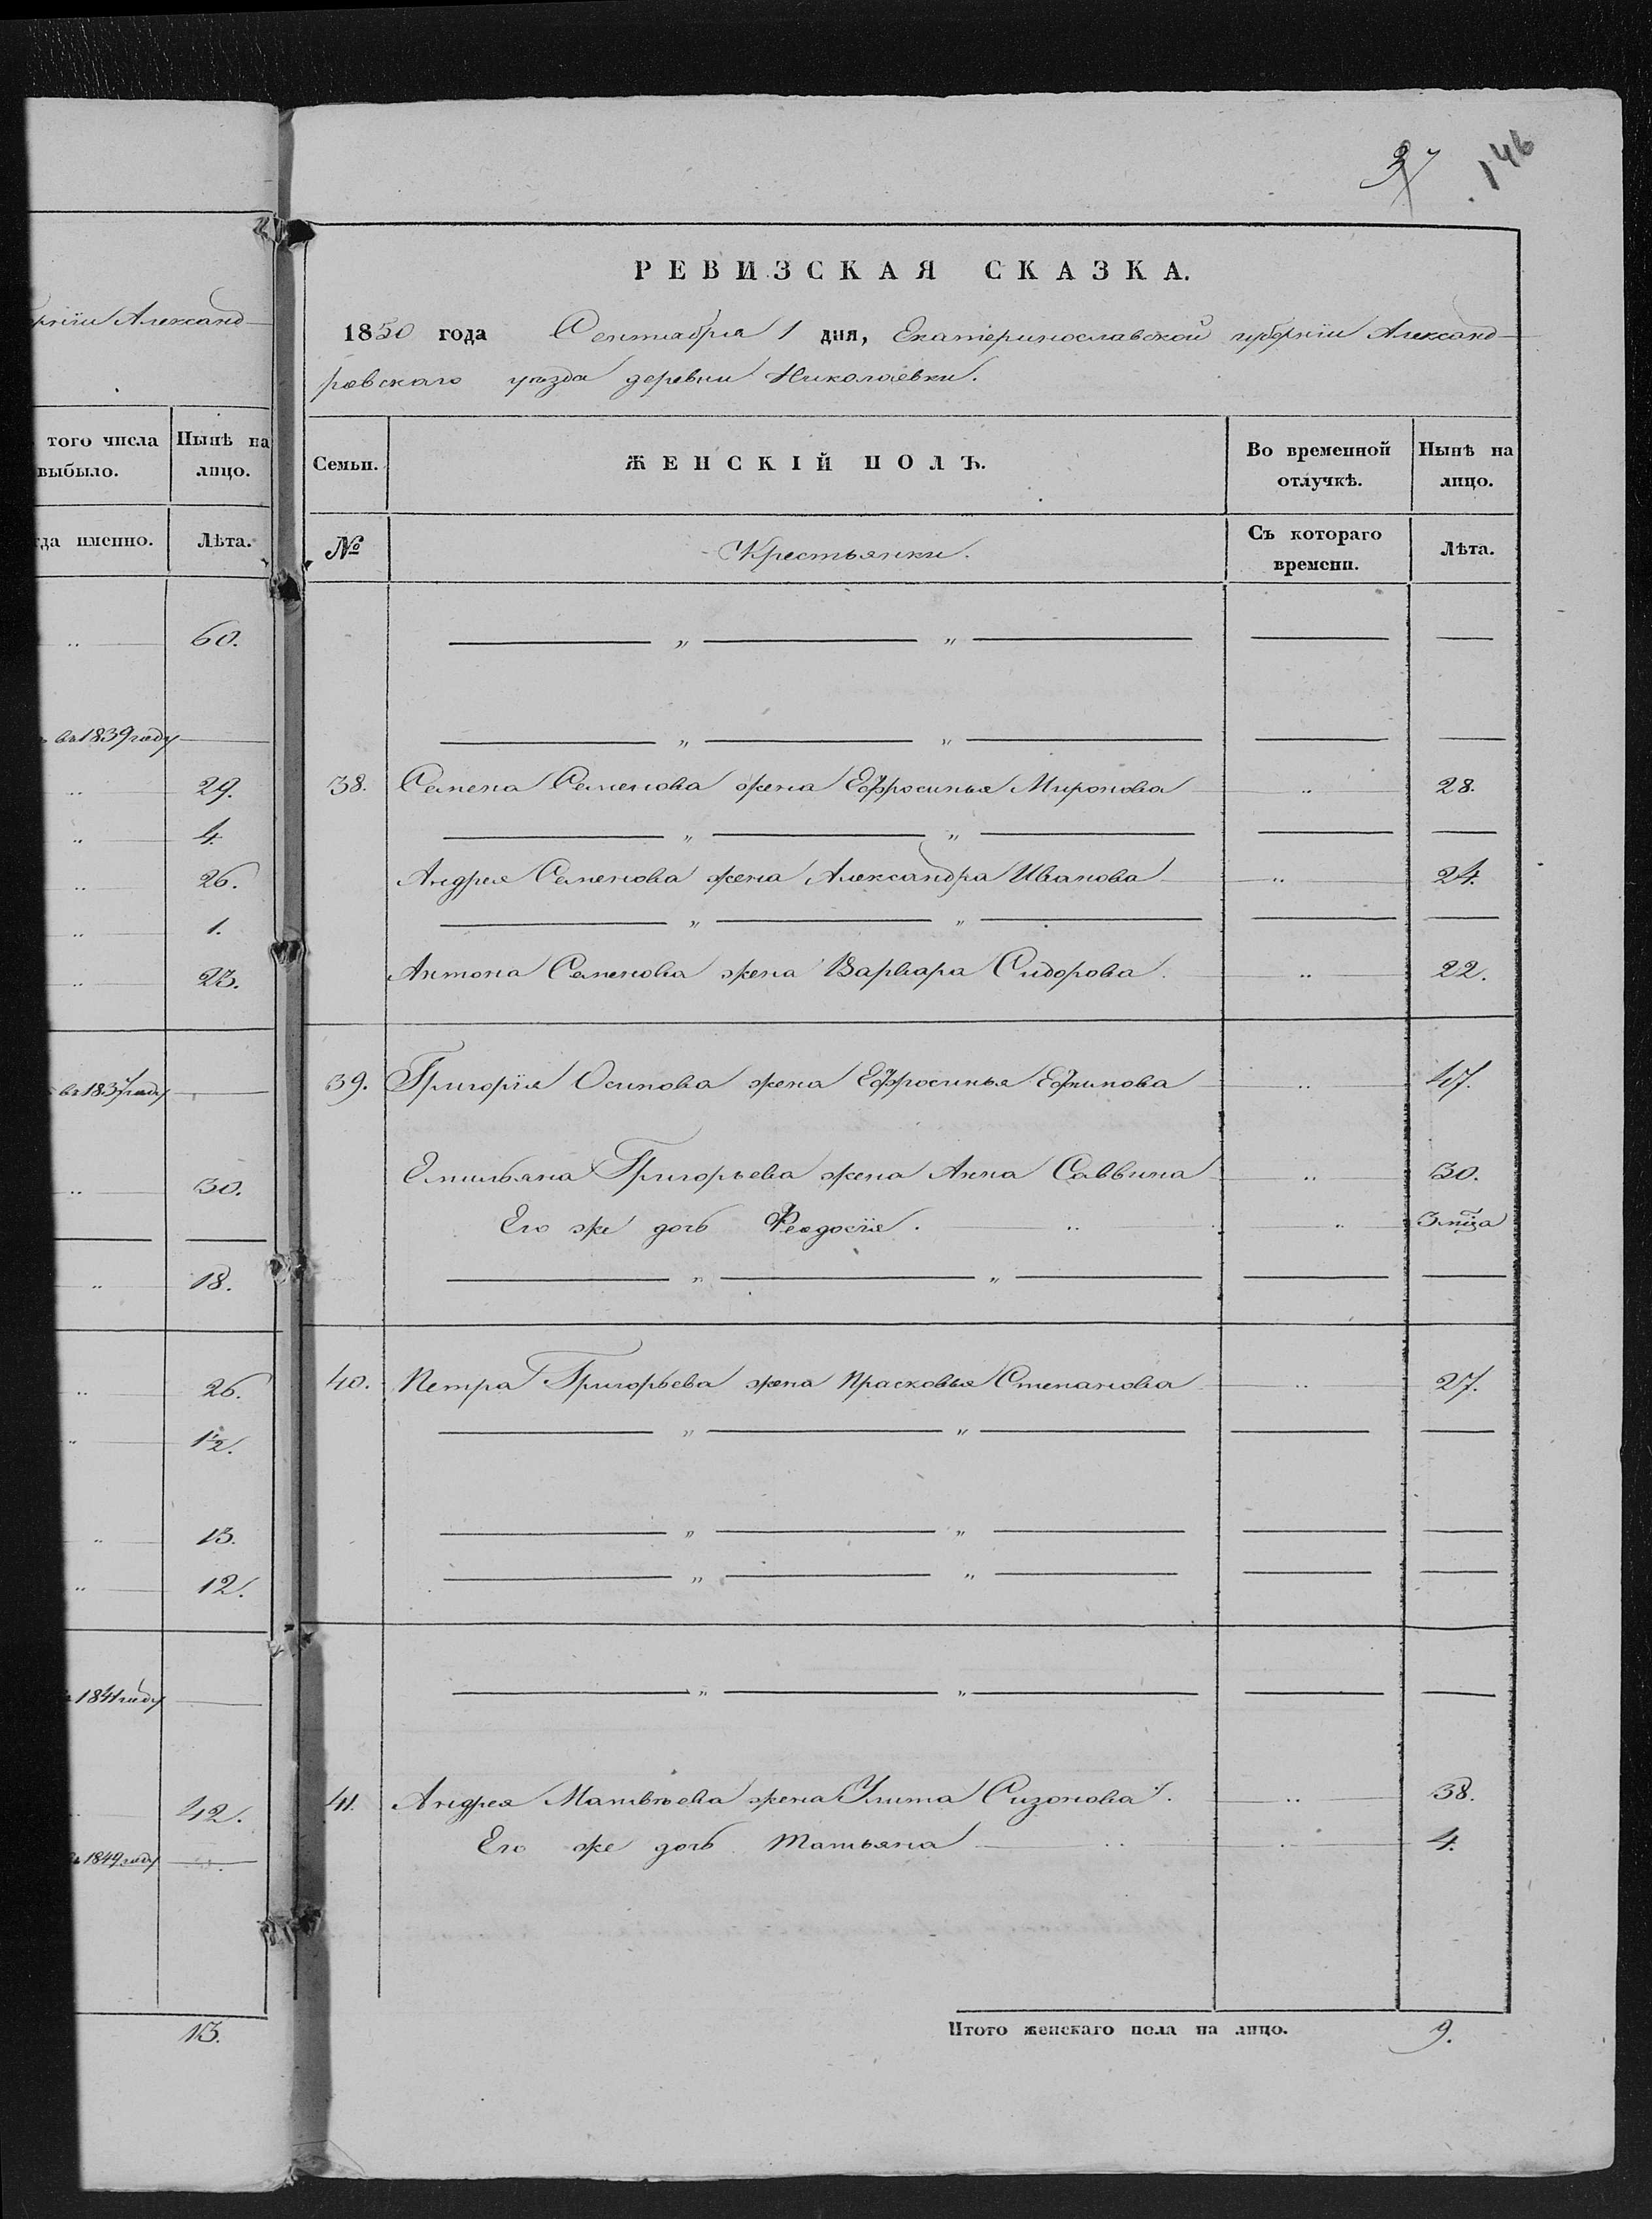 37 146
рніи Александ-
того числа выбыло. Нынѣ на лицо.
да именно. Лѣта.
„ 60.
въ 1839 году
„ 29.
„ 4.
„ 26.
„ 1.
„ 23.
въ 1837 году
„ 30.
„ 18.
„ 26.
„ 1½.
„ 13.
„ 12.
1841 году
42.
1849 году
13.
РЕВИЗСКАЯ СКАЗКА.
1850 года Сентября 1 дня, Екатеринославской губерніи Александ-
ровскаго уѣзда деревни Николаевки.
Семьи. ЖЕНСКІЙ ПОЛЪ. Во временной отлучкѣ. Нынѣ на лицо.
№ Крестьянки. Съ котораго времени. Лѣта.
— „ — „ — — —
— „ — „ — — —
38. Семена Семенова жена Ефросинья Миронова „ 28.
— „ — „ — — —
Андрея Семенова жена Александра Иванова „ 24.
— „ — „ — — —
Антона Семенова жена Варвара Сидорова. „ 22.
39. Григорія Осипова жена Ефросинья Ефимова „ 47.
Емильяна Григорьева жена Анна Саввина „ 30.
Его же дочь Феодосія. „ „ 3 мца
— „ — „ — — —
40. Петра Григорьева жена Прасковья Степанова „ 27.
— „ — „ — — —
— „ — „ — — —
— „ — „ — — —
— „ — „ — — —
41. Андрея Матвѣева жена Улита Сизонова. „ 38.
Его же дочь Татьяна „ „ 4.
Итого женскаго пола на лицо. 9.